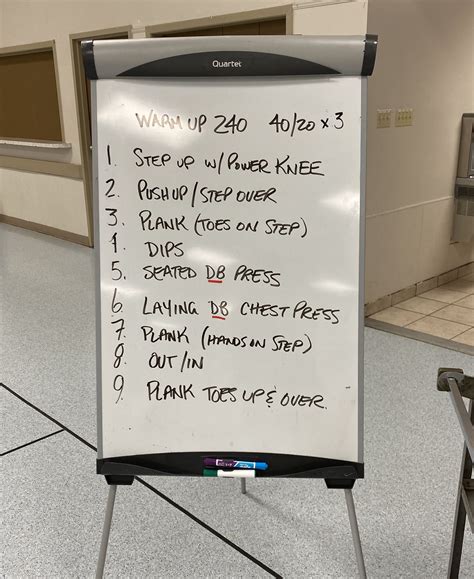 Quartet
WARM UP 240 40/20 x 3
1. STEP UP W/POWER KNEE
2. PUSHUP/STEP OVER
3. PLANK (TOES ON STEP)
4. DIPS
5. SEATED DB PRESS
6. LAYING DB CHEST PRESS
7. PLANK (HANDS ON STEP)
8. OUT/IN
9. PLANK TOES UP & OVER.